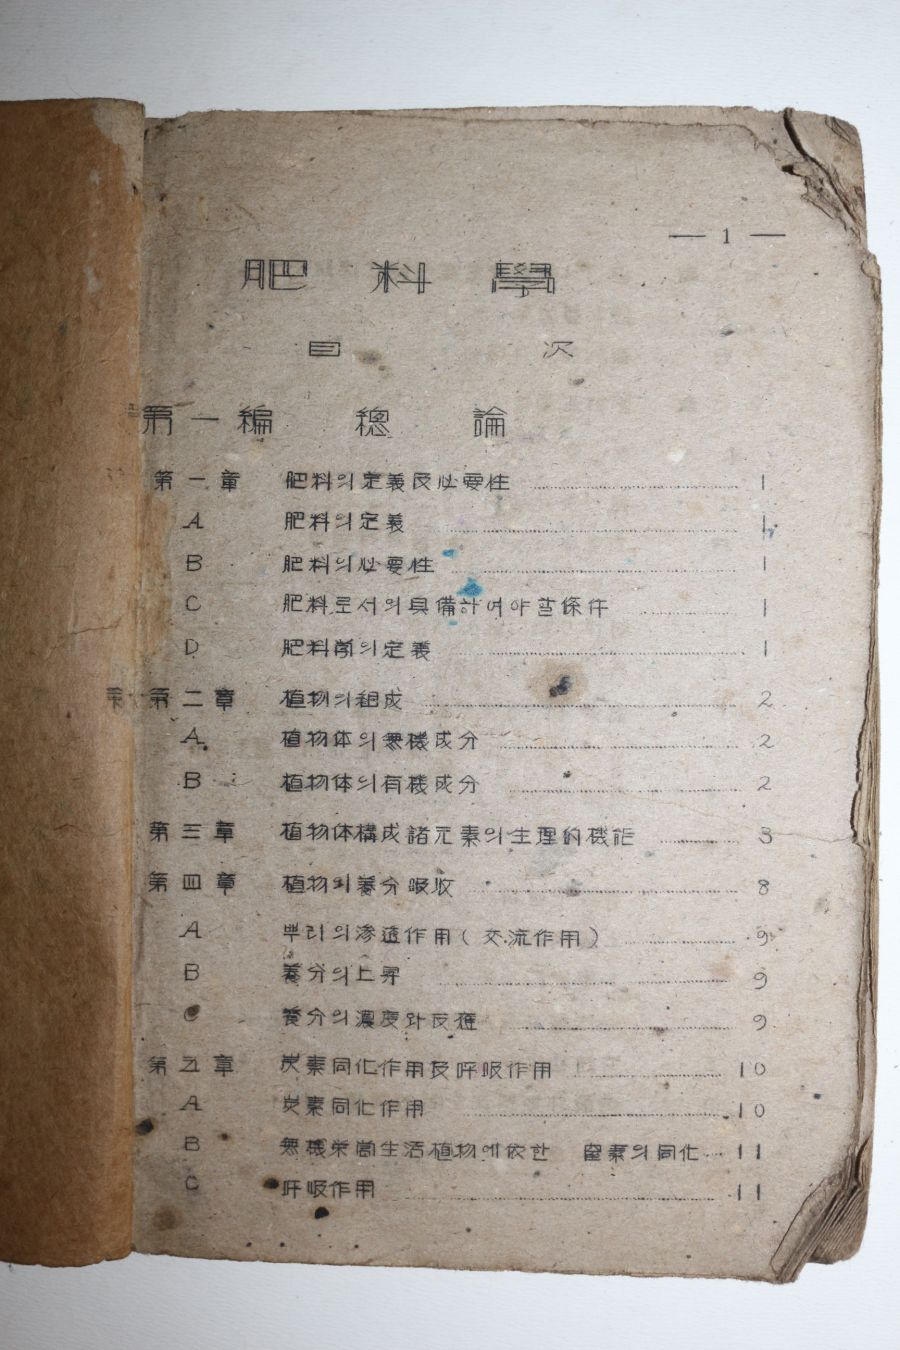 — 1 —
肥料學
目次
第一編 總論
第一章 肥料의定義及必要性 1
A 肥料의定義 1
B 肥料의必要性 1
C 肥料로서의具備하여야할條件 1
D 肥料學의定義 1
第二章 植物의組成 2
A 植物体의無機成分 2
B 植物体의有機成分 2
第三章 植物体構成諸元素의生理的機能 3
第四章 植物의養分吸收 8
A 뿌리의滲透作用(交流作用) 9
B 養分의上昇 9
C 養分의濃度와反應 9
第五章 炭素同化作用及呼吸作用 10
A 炭素同化作用 10
B 無機栄酱生活植物에依한 窒素의同化 11
C 呼吸作用 11